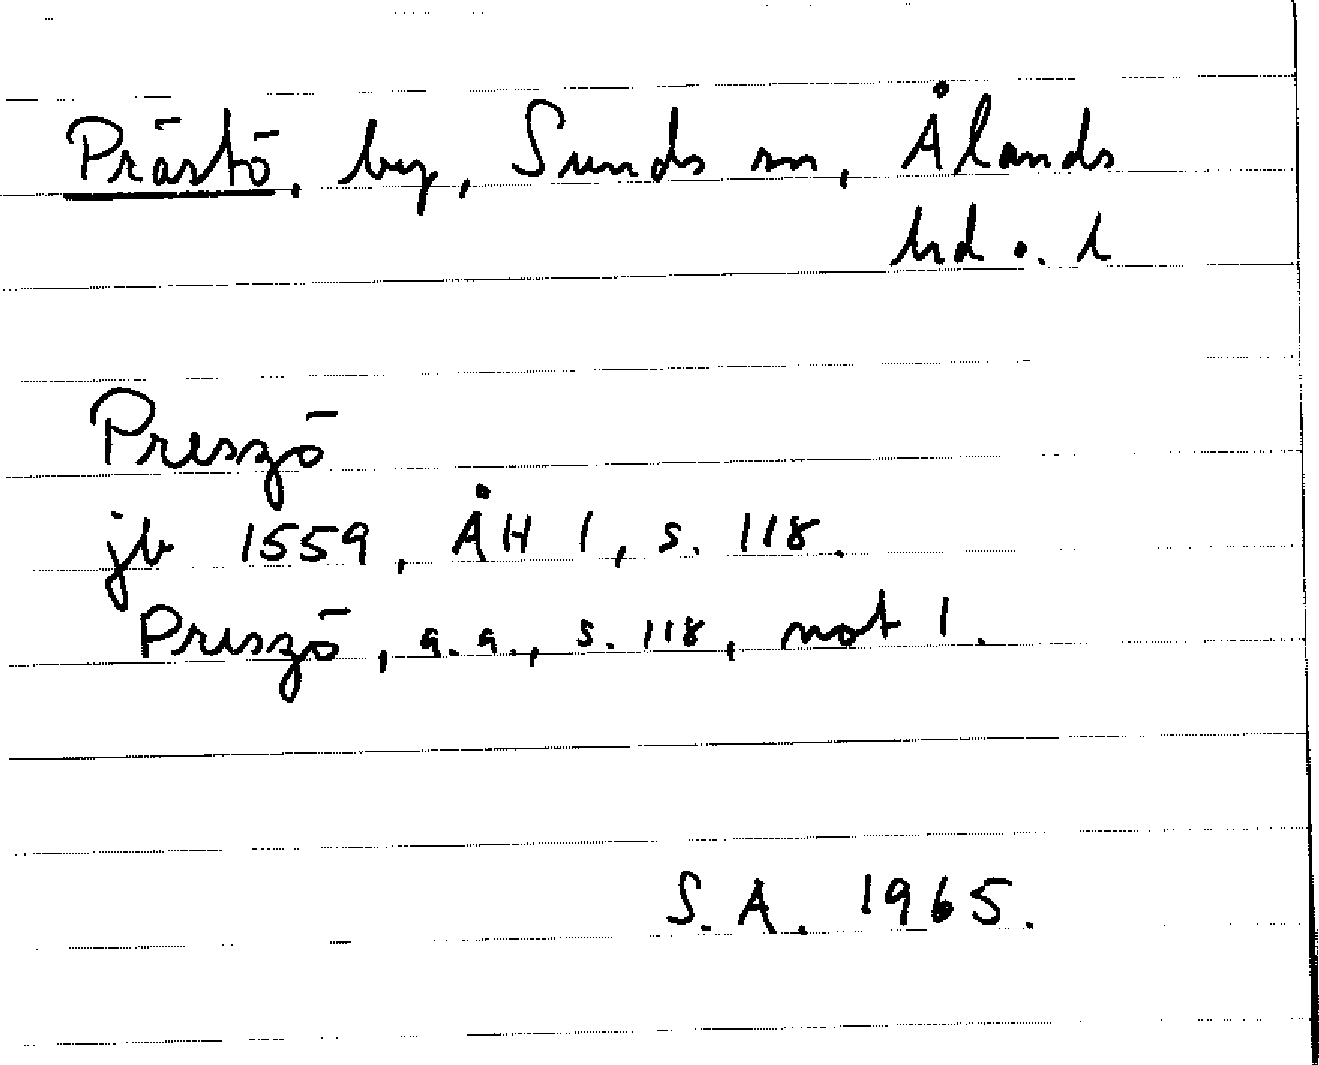 Prästö, by, Sunds sn, Ålands
hd o. l
Preszö
jb 1559, ÅH 1, s. 118.
Preszö, a.a., s. 118, not 1.
S.A. 1965.